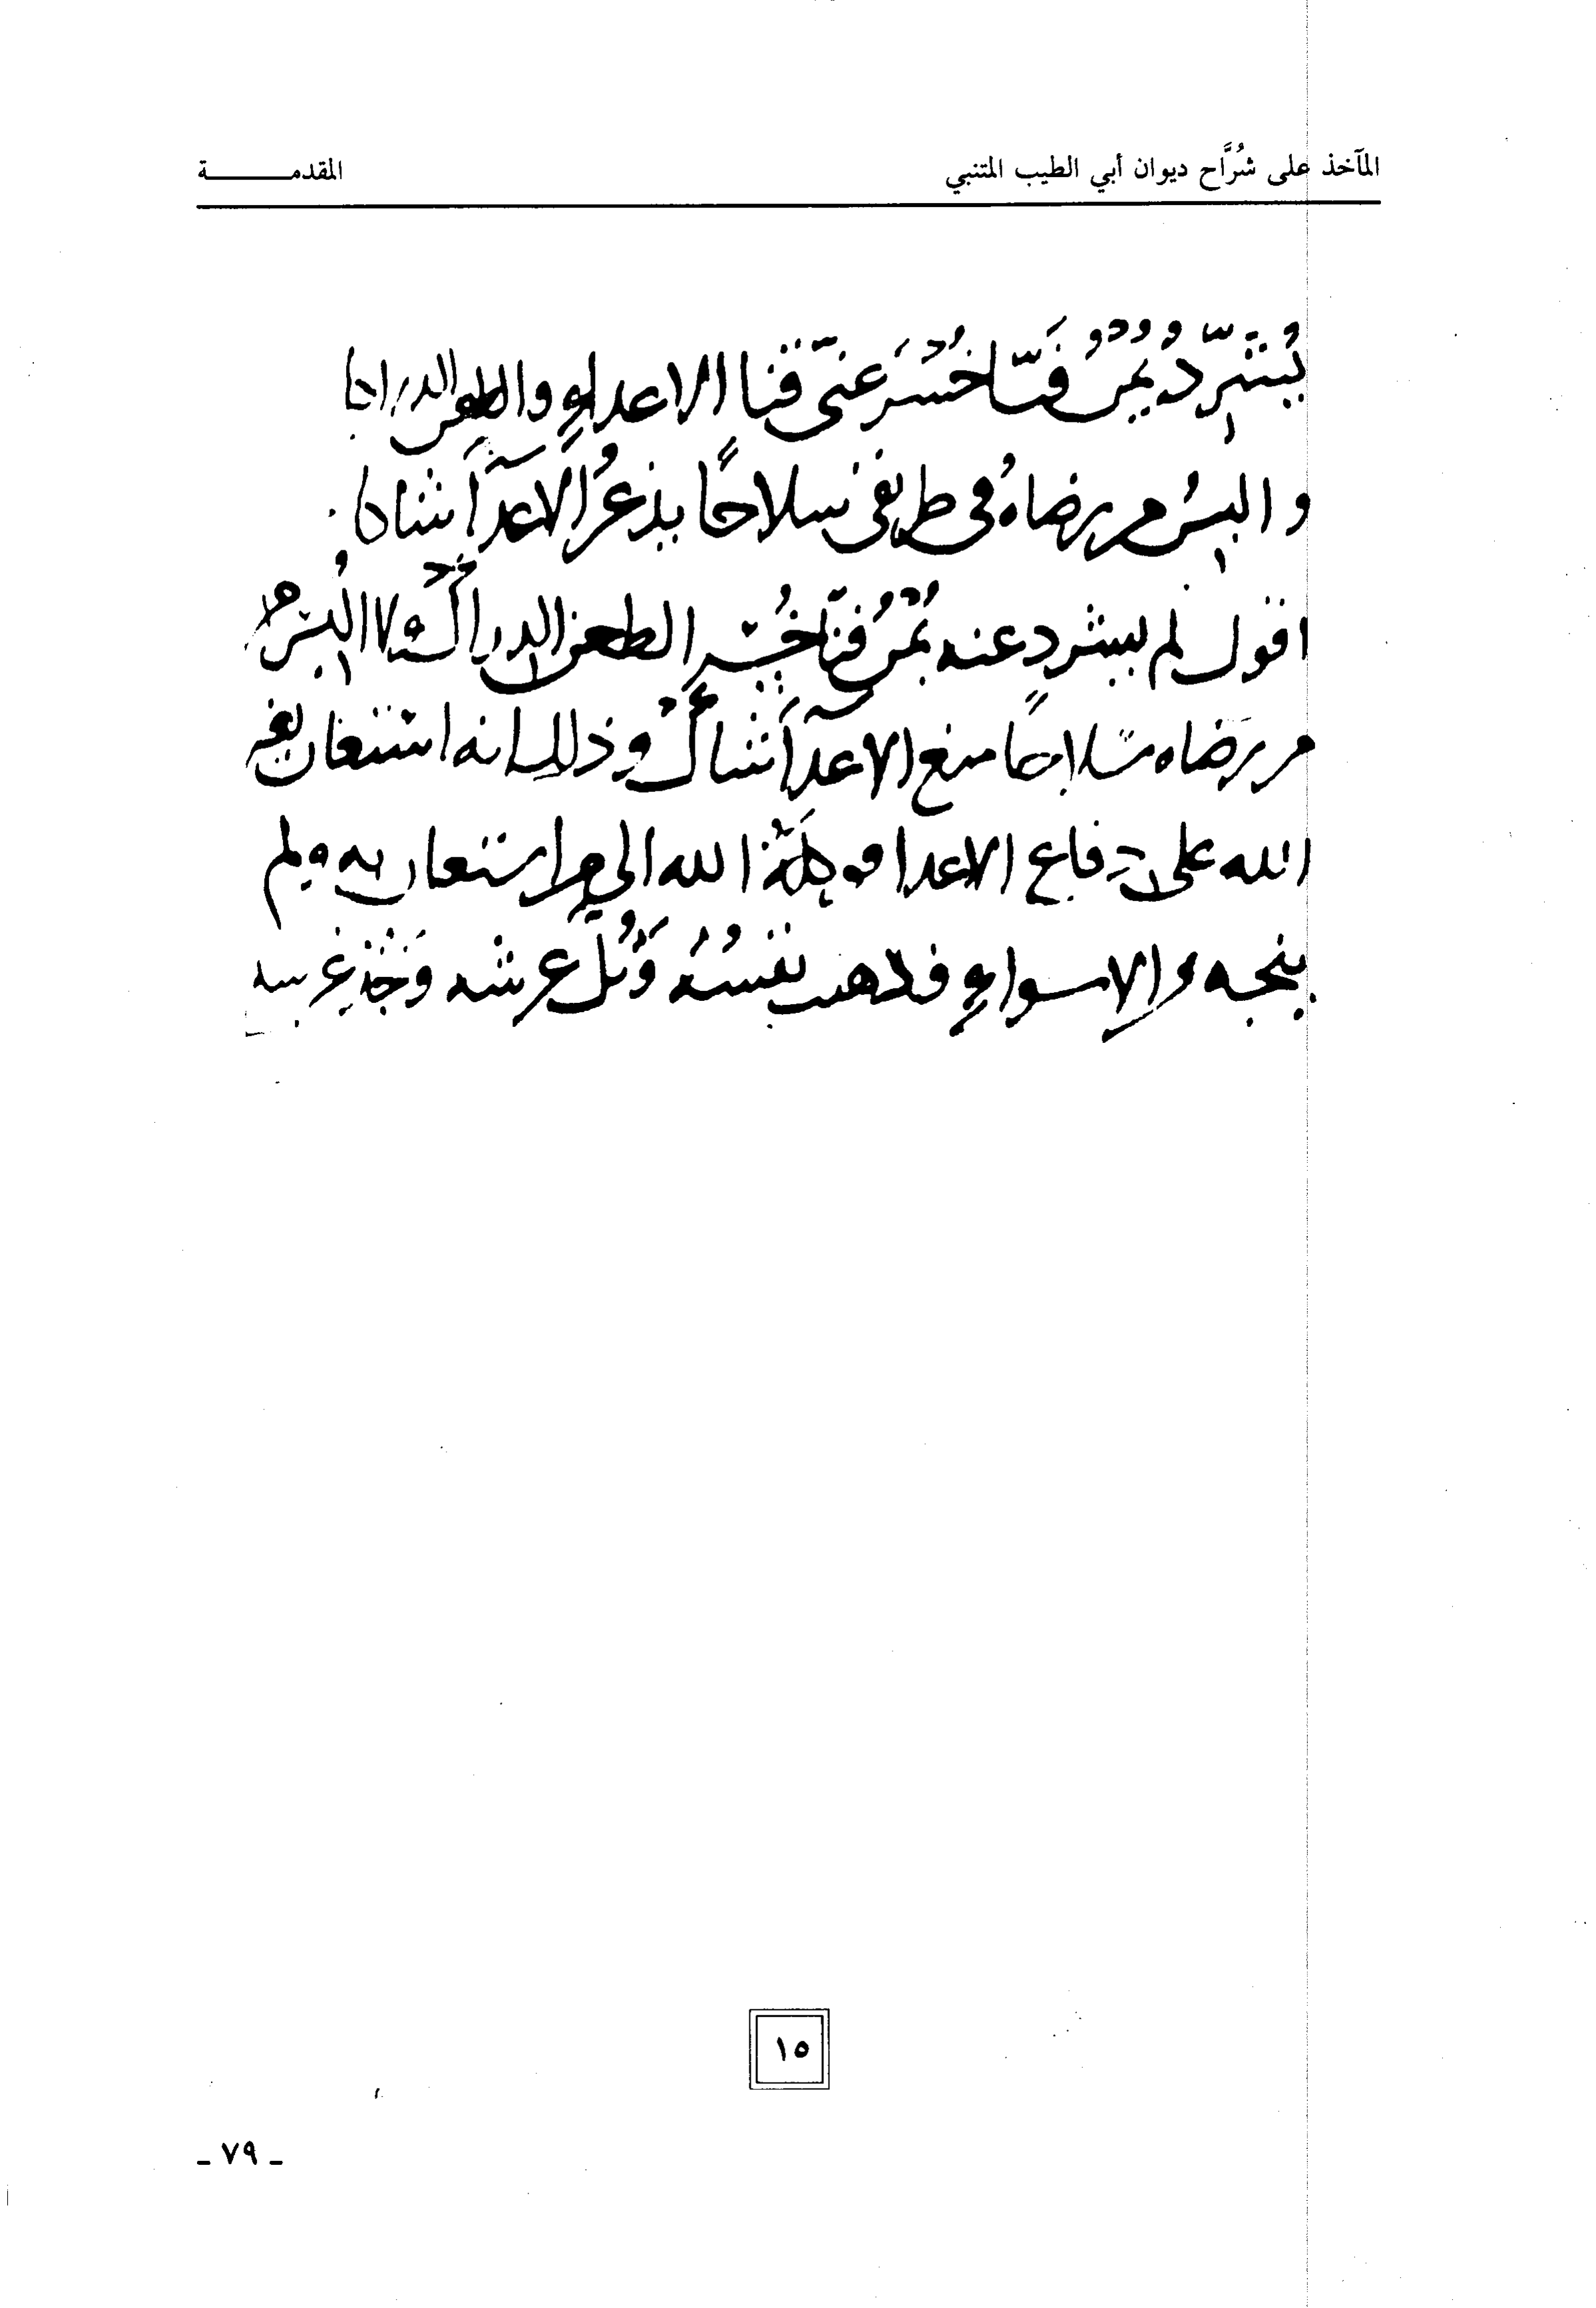 المآخذ على شُرَّاح ديوان أبي الطيب المتنبي
المقدمـــــــة
يُشَرِّدُ يُمْنُ فَنَّاخُسْرَ عنّى قنا الاعداءِ والطعن الدراكا
والبسُ من رضاهُ فى طريقى سلاحًا يذعرُ الاعدآَ شاكا
اقول لم يشرد عنه يُمْنُ فنّاخُسْر الطعن الدراكَ ولا البسَهُ
من رضاه سلاحًا منع الاعدآَ شاكْ وذلك انه استعان بغير
الله على دفاع الاعدا فوكله الله الى من استعان به ولم
ينجه والاسواء فذهب نفسُه وثُلَّ عرشه وجُذ غرسه
١٥
ـ ٧٩ ـ